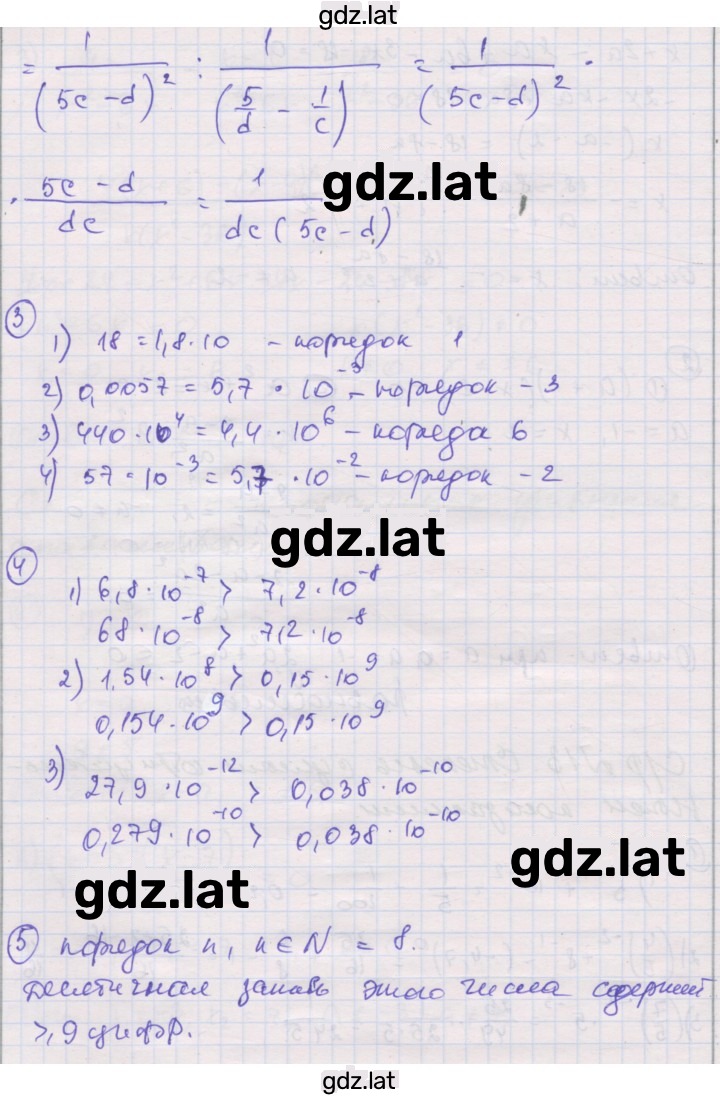 gdz.lat
= 1/(5c - d)² : 1/(5/d - 1/c) = 1/(5c - d)² ·
· (5c - d)/dc = 1/(dc(5c - d))
gdz.lat
3
1) 18 = 1,8 · 10 - порядок 1
2) 0,0057 = 5,7 · 10⁻³ - порядок - 3
3) 440 · 10⁴ = 4,4 · 10⁶ - порядок 6
4) 57 · 10⁻³ = 5,7 · 10⁻² - порядок - 2
gdz.lat
4
1) 6,8 · 10⁻⁷ > 7,2 · 10⁻⁸
68 · 10⁻⁸ > 7,2 · 10⁻⁸
2) 1,54 · 10⁸ > 0,15 · 10⁹
0,154 · 10⁹ > 0,15 · 10⁹
3) 27,9 · 10⁻¹² > 0,038 · 10⁻¹⁰
0,279 · 10⁻¹⁰ > 0,038 · 10⁻¹⁰
gdz.lat
gdz.lat
5 порядок n, n ∈ N = 8.
Десятичная запись этого числа содержит
⩾ 9 цифр.
gdz.lat